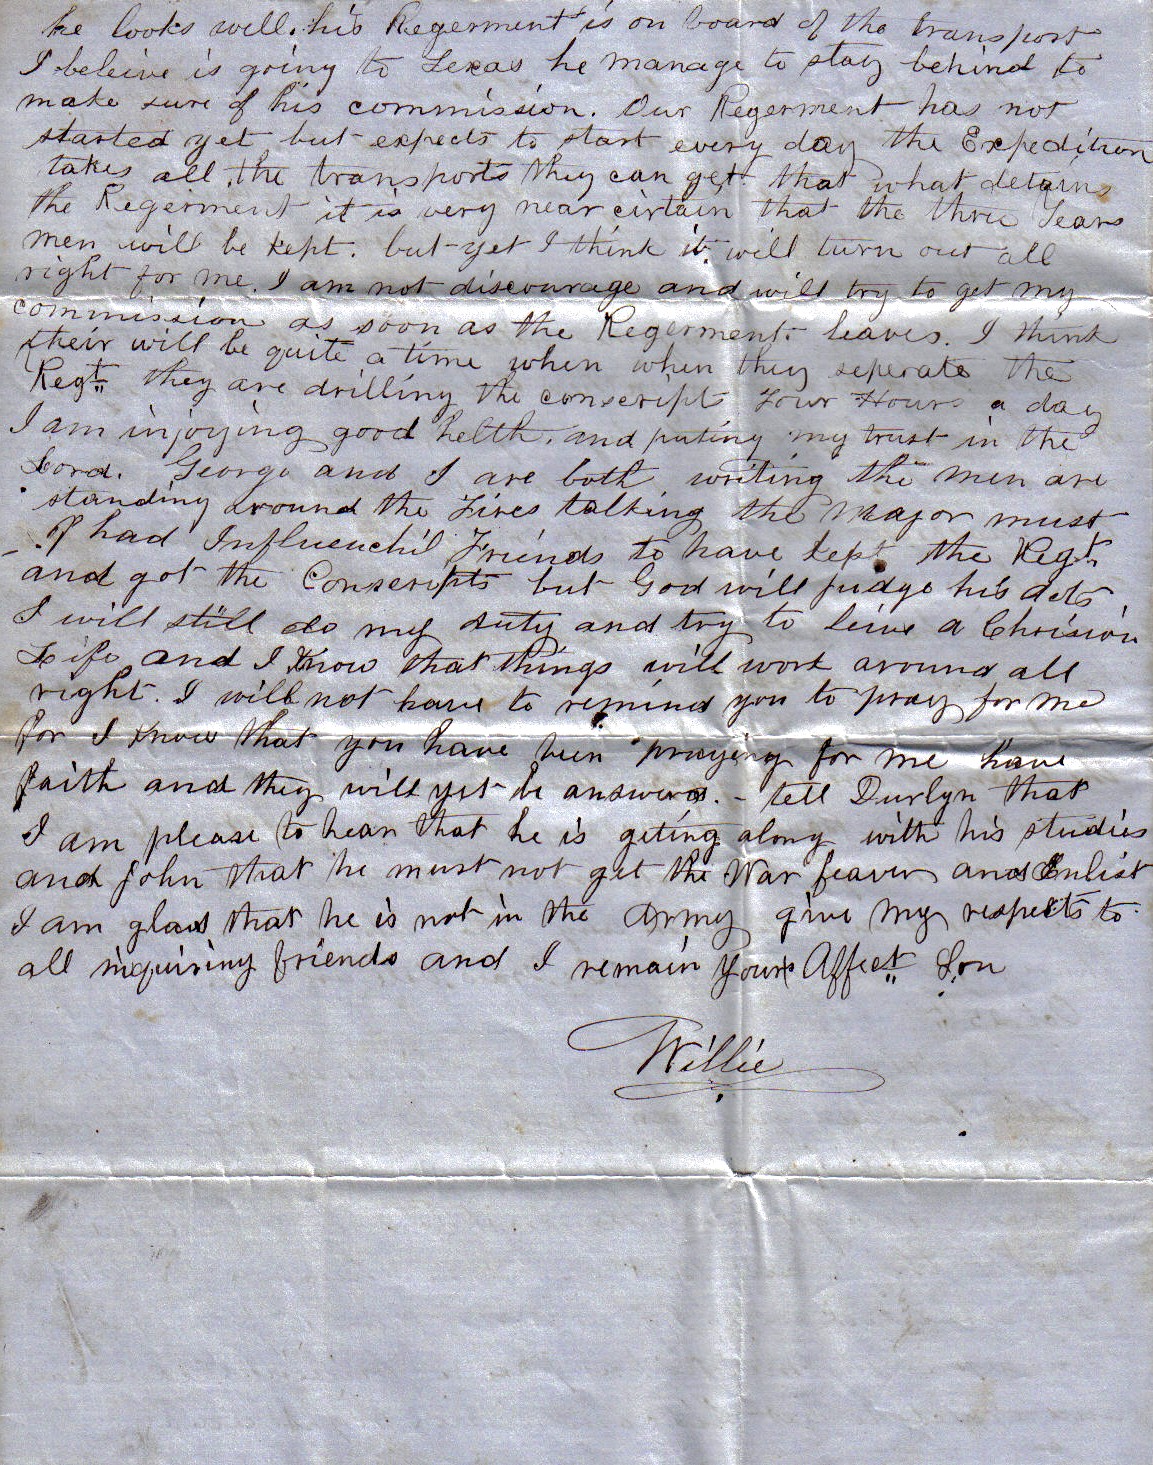 he looks well. his Regerment is on board of the transport
I beleive is going to Texas he manage to stay behind to
make sure of his commission. Our Regerment has not
started yet but expects to start every day the Expedition
takes all the transports they can get that what detains
the Regerment it is very near cirtain that the three Years
men will be kept. but yet I think it will turn out all
right for me. I am not discourage and will try to get my
commission as soon as the Regerment leaves. I think
their will be quite a time when when they seperate the
Regt they are drilling the conscripts Four Hours a day
I am injoying good helth. and puting my trust in the
Lord. George and I are both writing the men are
standing around the Fires talking the Major must
of had Influenchil Friends to have kept the Regt
and got the Conscripts but God will judge his acts
I will still do my duty and try to leive a Chrision
Life and I Know that things will work around all
right. I will not have to remind you to pray for me
for I know that you have been praying for me have
faith and they will yet be answerd. - tell Durlyn that
I am please to hear that he is geting along with his studies
and John that he must not get the War feaver and Enlist
I am glad that he is not in the Army give my respects to
all inquiring friends and I remain Yours Affect Son
Willie